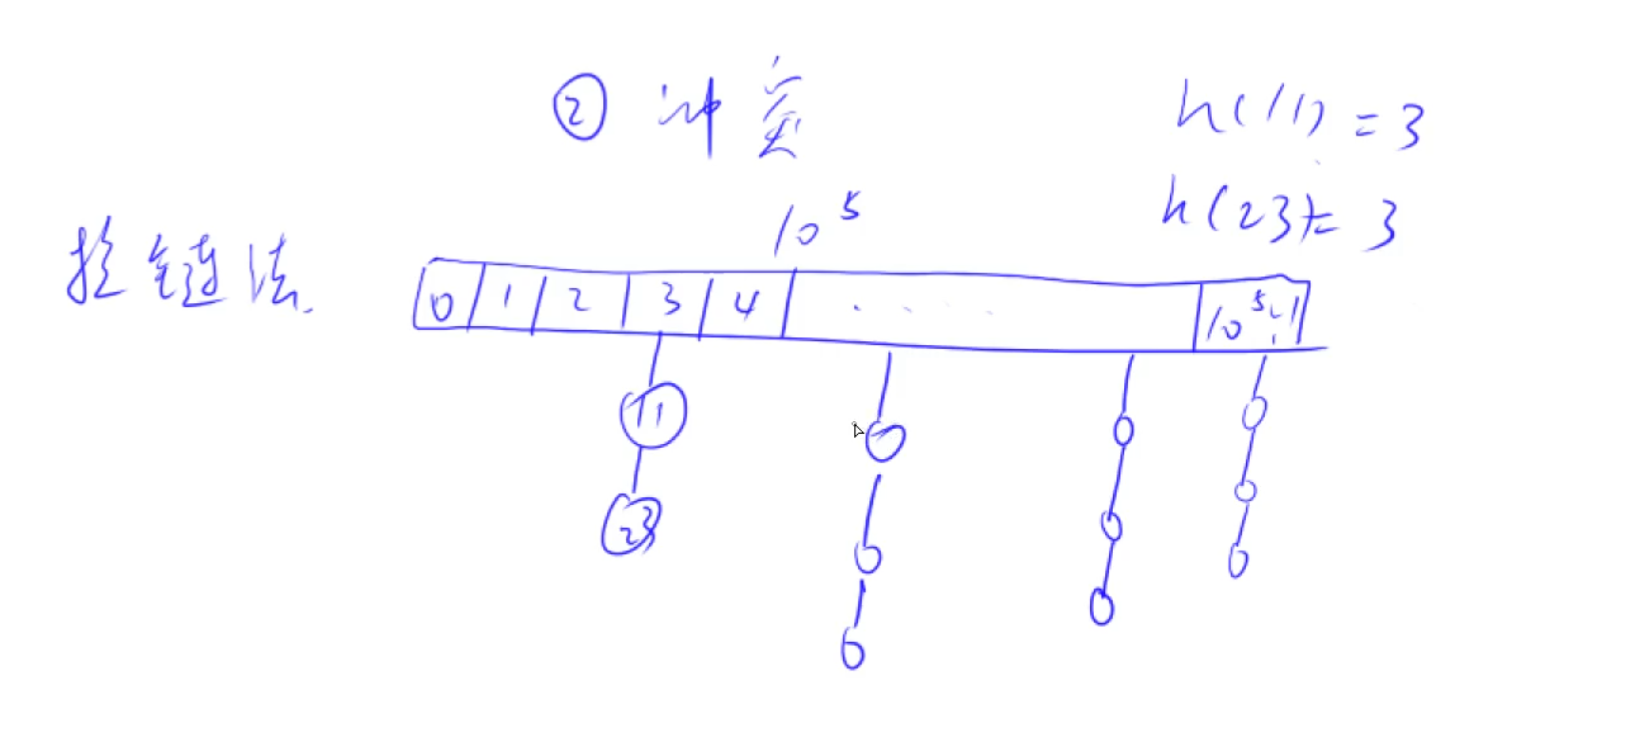 ② 冲突
h(11) = 3
h(23) = 3
拉链法
10⁵
0 1 2 3 4 .... 10⁵-1
11
23